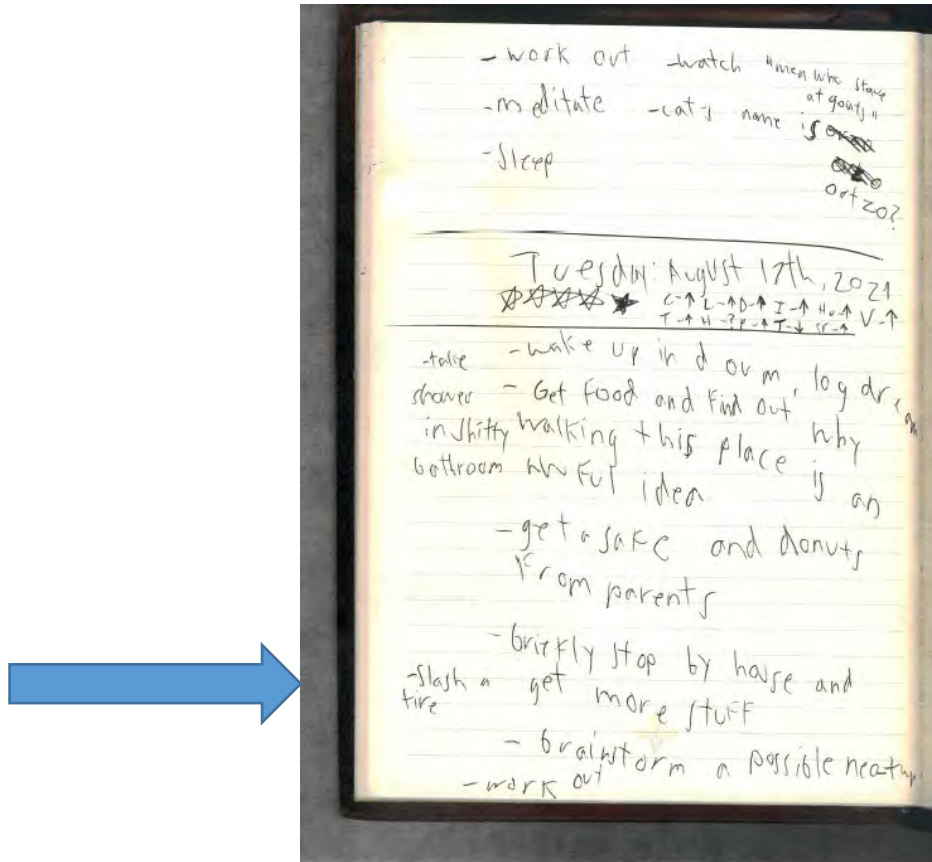 - work out - watch "men who stare
at goats"
- meditate - cat's name is
- Sleep
ortzo?
Tuesday: August 17th, 2021
C-↑ L-↑ D-↑ I-↑ Hu-↑ V-↑
T-↑ H-? P-↑ T-↓ Sr-↑
- wake up in dorm, log dream
- take
shower
in shitty
bathroom
- Get food and find out why
walking this place is an
awful idea
- get a safe and donuts
from parents
- briefly stop by house and
get more stuff
- Slash a
tire
- brainstorm a possible
- work out